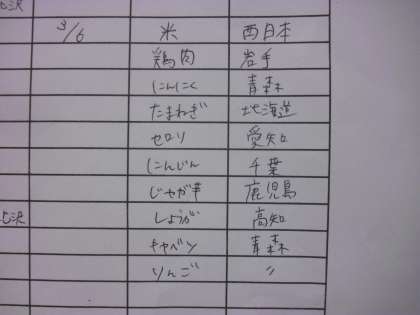 3/6 米 西日本
鶏肉 岩手
にんにく 青森
たまねぎ 北海道
セロリ 愛知
にんじん 千葉
じゃが芋 鹿児島
しょうが 高知
キャベツ 青森
りんご 〃